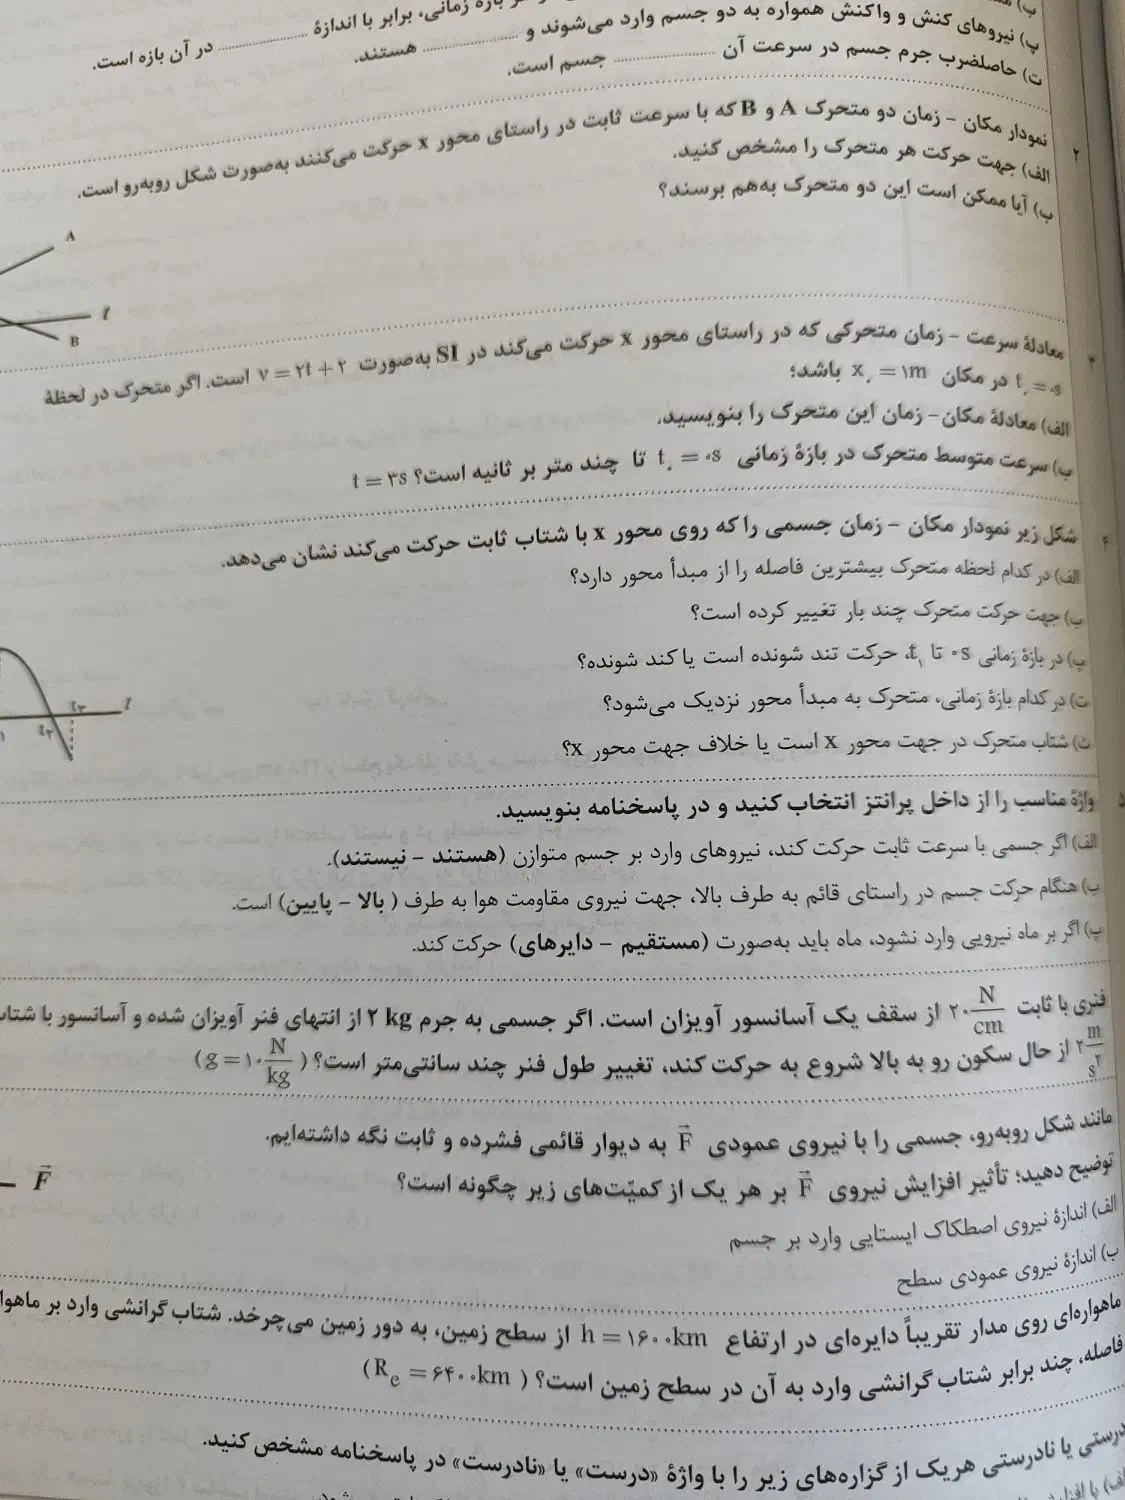 پ) نیروهای کنش و واکنش همواره به دو جسم وارد می‌شوند و .............. هستند.
بازهٔ زمانی، برابر با اندازهٔ .............. در آن بازه است.
ت) حاصلضرب جرم جسم در سرعت آن .............. جسم است.
۲ نمودار مکان - زمان دو متحرک A و B که با سرعت ثابت در راستای محور x حرکت می‌کنند به‌صورت شکل روبه‌رو است.
الف) جهت حرکت هر متحرک را مشخص کنید.
ب) آیا ممکن است این دو متحرک به‌هم برسند؟
A
t
B
۳ معادلهٔ سرعت - زمان متحرکی که در راستای محور x حرکت می‌کند در SI به‌صورت v = ۲t + ۲ است. اگر متحرک در لحظهٔ
t۰ = ۰s در مکان x۰ = ۱m باشد؛
الف) معادلهٔ مکان- زمان این متحرک را بنویسید.
ب) سرعت متوسط متحرک در بازهٔ زمانی t۰ = ۰s تا t = ۳s چند متر بر ثانیه است؟
۴ شکل زیر نمودار مکان - زمان جسمی را که روی محور x با شتاب ثابت حرکت می‌کند نشان می‌دهد.
الف) در کدام لحظه متحرک بیشترین فاصله را از مبدأ محور دارد؟
ب) جهت حرکت متحرک چند بار تغییر کرده است؟
پ) در بازهٔ زمانی ۰s تا t۱، حرکت تند شونده است یا کند شونده؟
ت) در کدام بازهٔ زمانی، متحرک به مبدأ محور نزدیک می‌شود؟
ث) شتاب متحرک در جهت محور x است یا خلاف جهت محور x؟
t۲
t۳
t
۵ واژهٔ مناسب را از داخل پرانتز انتخاب کنید و در پاسخنامه بنویسید.
الف) اگر جسمی با سرعت ثابت حرکت کند، نیروهای وارد بر جسم متوازن (هستند - نیستند).
ب) هنگام حرکت جسم در راستای قائم به طرف بالا، جهت نیروی مقاومت هوا به طرف ( بالا - پایین) است.
پ) اگر بر ماه نیرویی وارد نشود، ماه باید به‌صورت (مستقیم - دایره‌ای) حرکت کند.
فنری با ثابت ۲۰ N/cm از سقف یک آسانسور آویزان است. اگر جسمی به جرم ۲ kg از انتهای فنر آویزان شده و آسانسور با شتاب
۲ m/s² از حال سکون رو به بالا شروع به حرکت کند، تغییر طول فنر چند سانتی‌متر است؟ ( g = ۱۰ N/kg )
مانند شکل روبه‌رو، جسمی را با نیروی عمودی F به دیوار قائمی فشرده و ثابت نگه داشته‌ایم.
توضیح دهید؛ تأثیر افزایش نیروی F بر هر یک از کمیّت‌های زیر چگونه است؟
الف) اندازهٔ نیروی اصطکاک ایستایی وارد بر جسم
ب) اندازهٔ نیروی عمودی سطح
F
ماهواره‌ای روی مدار تقریباً دایره‌ای در ارتفاع h = ۱۶۰۰km از سطح زمین، به دور زمین می‌چرخد. شتاب گرانشی وارد بر
فاصله، چند برابر شتاب گرانشی وارد به آن در سطح زمین است؟ ( Re = ۶۴۰۰km )
درستی یا نادرستی هریک از گزاره‌های زیر را با واژهٔ «درست» یا «نادرست» در پاسخنامه مشخص کنید.